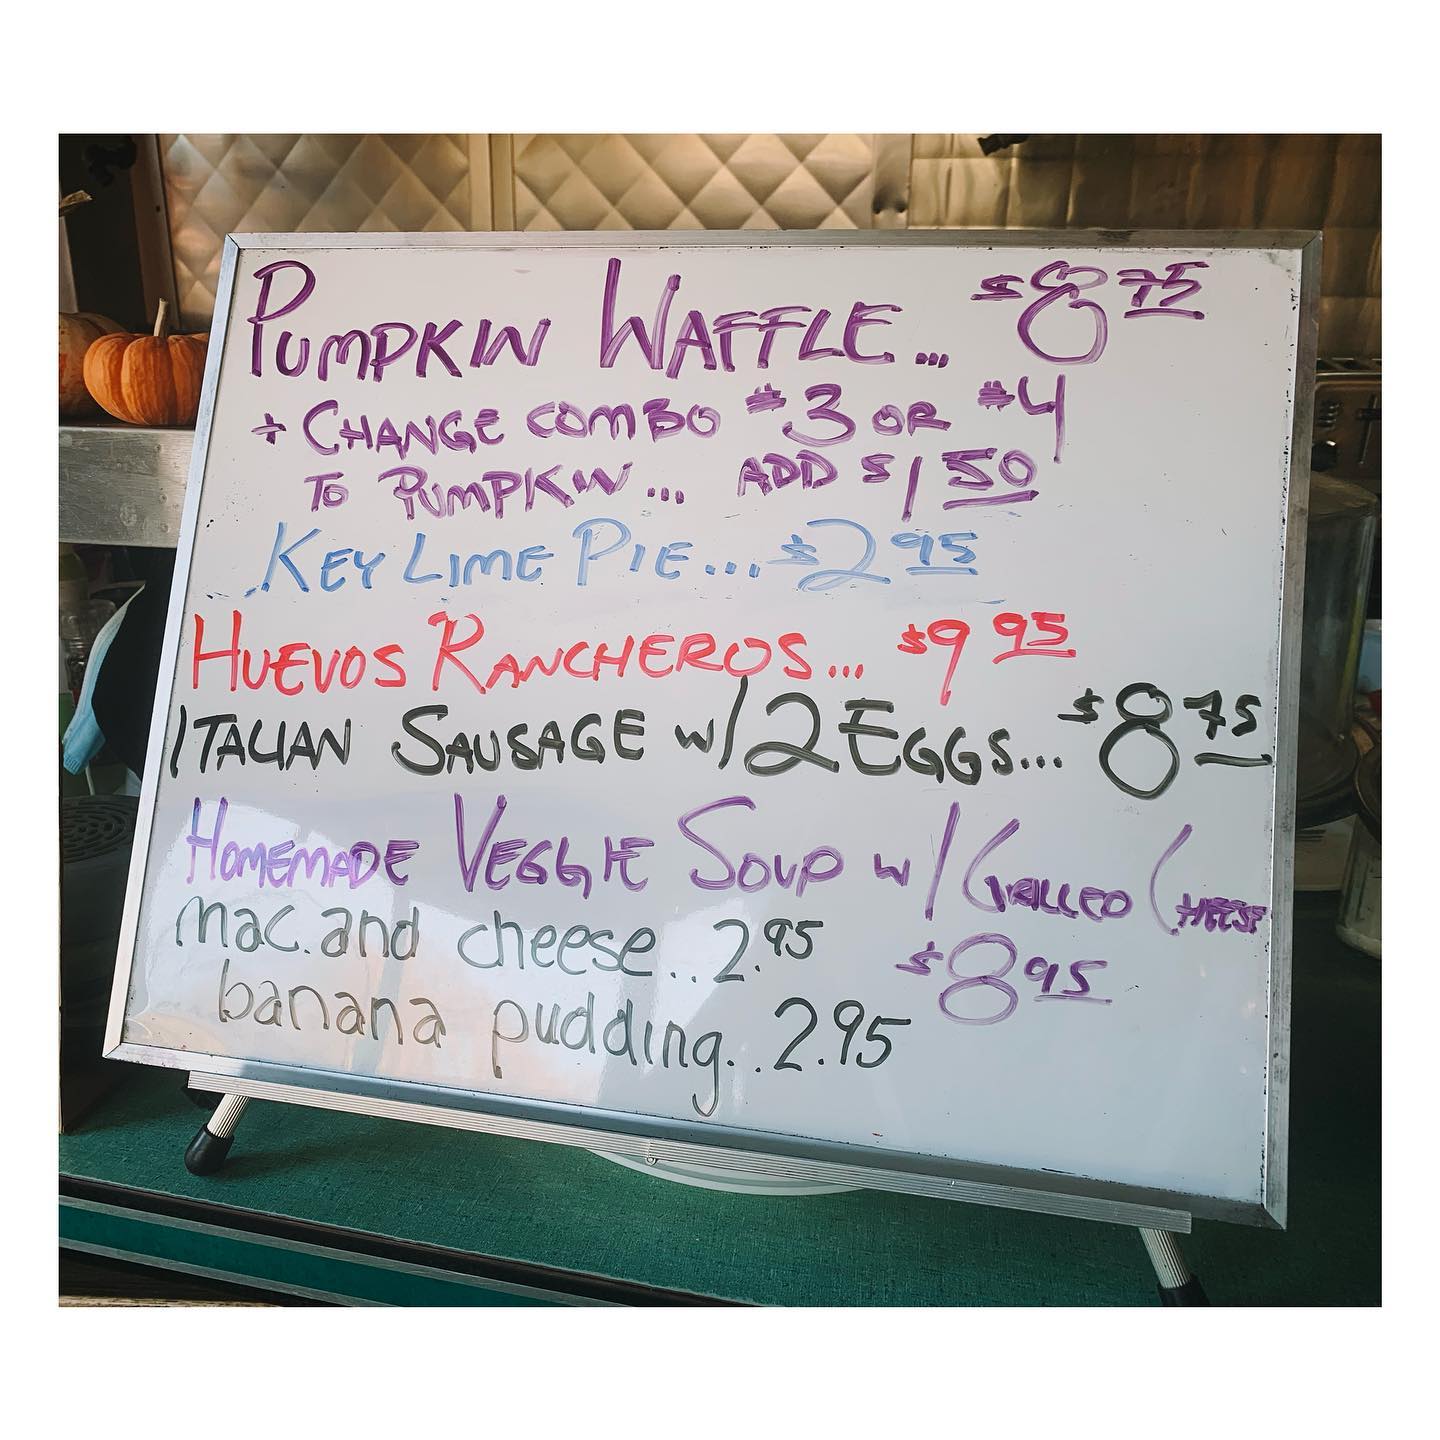 PUMPKIN WAFFLE... $8 75
+ CHANGE COMBO #3 OR #4
TO PUMPKIN... ADD $1 50
KEY LIME PIE... $2 95
HUEVOS RANCHEROS... $9 95
ITALIAN SAUSAGE w/ 2 EGGS... $8 75
HOMEMADE VEGGIE SOUP w/ GRILLED CHEESE
$8 95
mac. and cheese.. 2.95
banana pudding... 2.95